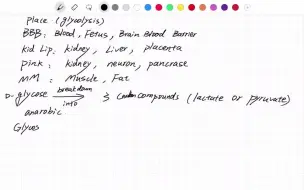 Place (glycolysis)
BBB: Blood, Fetus, Brain Blood Barrier
kid Lip: kidney, Liver, placenta
Pink: kidney, neuron, pancrase
MM: Muscle, Fat
D-glycose breakdown into 3 C compounds (lactate or pyruvate)
anarobic
Glycos